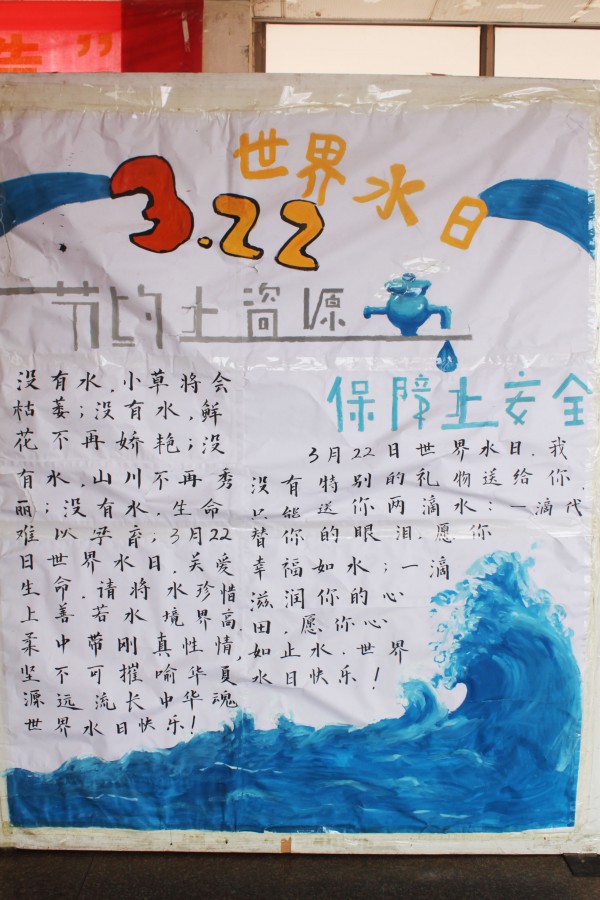 世界水日
3.22
节约土资源
保障土安全
没有水,小草将会
枯萎;没有水,鲜
花不再娇艳;没
有水,山川不再秀
丽;没有水,生命
难以孕育;3月22
日世界水日,关爱
生命,请将水珍惜
上善若水境界高,
柔中带刚真性情,
坚不可摧喻华夏
源远流长中华魂
世界水日快乐!
3月22日世界水日,我
没有特别的礼物送给你,
只能送你两滴水:一滴代
替你的眼泪,愿你
幸福如水;一滴
滋润你的心
田,愿你心
如止水,世界
水日快乐!